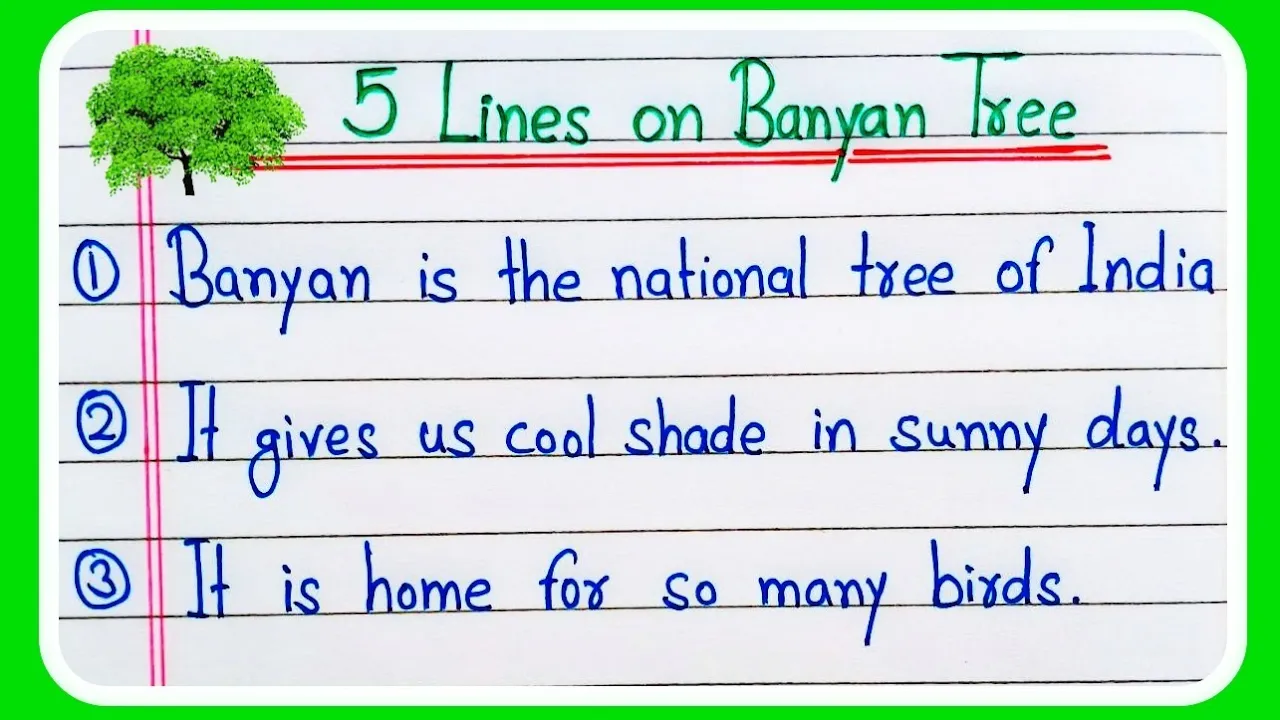 5 Lines on Banyan Tree
① Banyan is the national tree of India
② It gives us cool shade in sunny days.
③ It is home for so many birds.